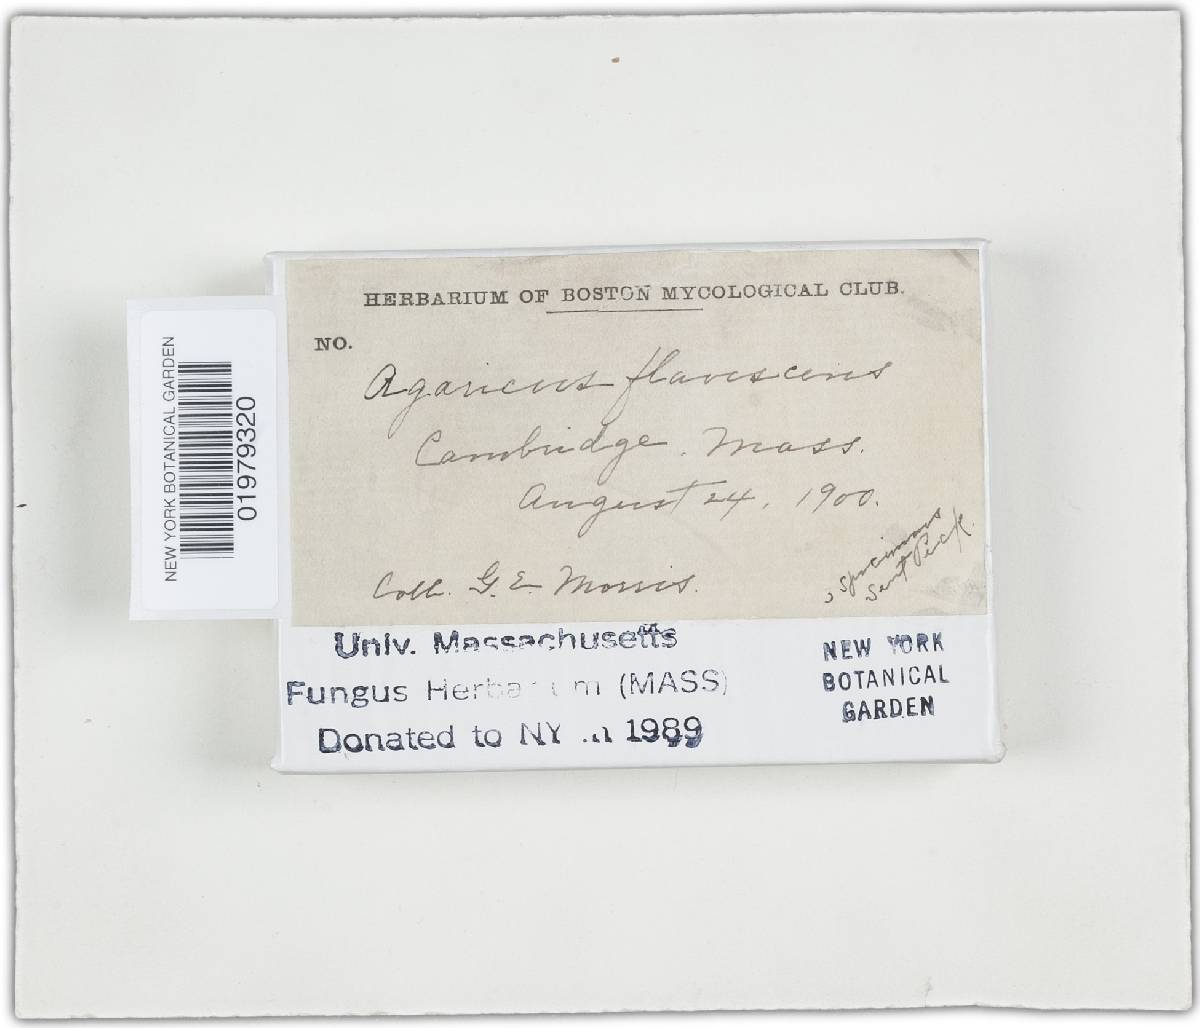 HERBARIUM OF BOSTON MYCOLOGICAL CLUB.
NO.
Agaricus flavescens
Cambridge. Mass.
August 24, 1900.
Coll. G. E. Morris.
specimens
Sent Peck.
Univ. Massachusetts
Fungus Herbarium (MASS)
Donated to NY in 1989
NEW YORK
BOTANICAL
GARDEN
NEW YORK BOTANICAL GARDEN
01979320